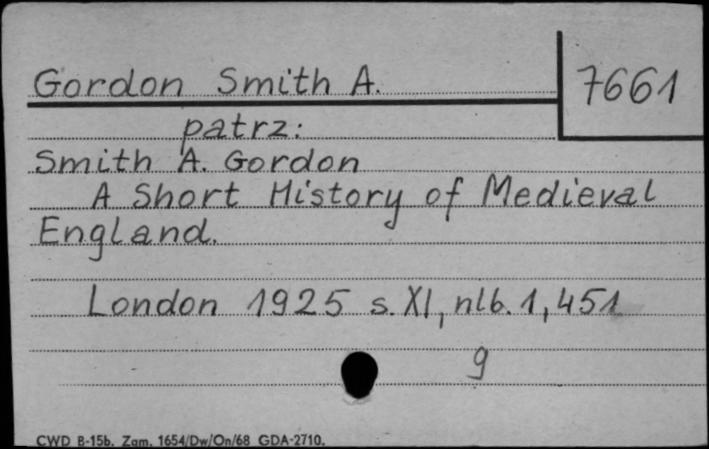 Gordon Smith A.
7661
patrz:
Smith A. Gordon
A Short History of Medieval
England.
London 1925 s. XI, nlb. 1, 451
9
CWD B-15b. Zam. 1654/Dw/On/68 GDA-2710.